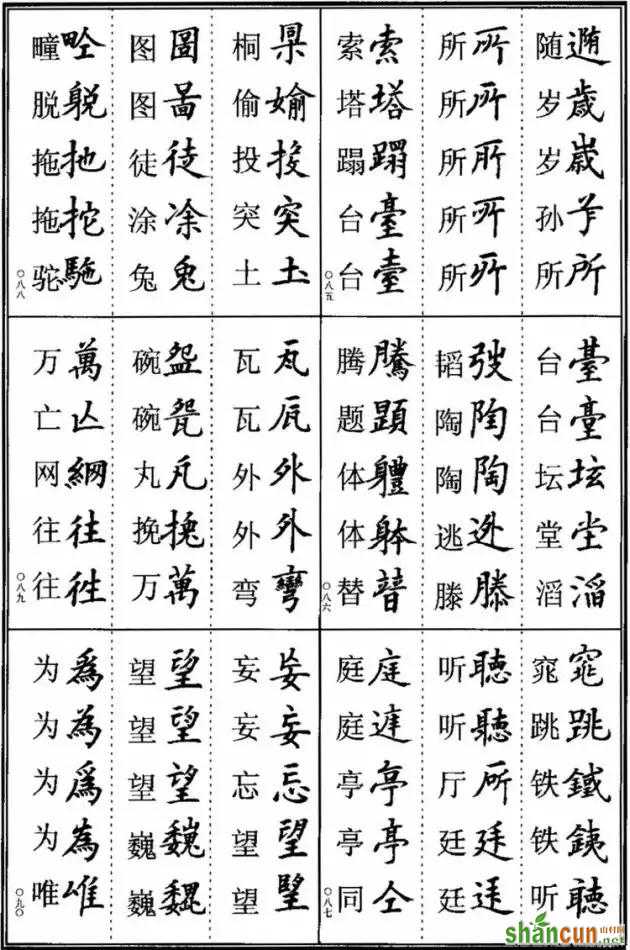 随 岁歳 岁嵗 孙 所所
所所 所所 所所 所所 所所
索索 塔塔 蹋蹋 台臺 台臺
〇八五
台臺 台臺 坛坛 堂坣 滔滔
韬弢 陶陶 陶陶 逃迯 滕滕
腾騰 题 体軆 体躰 替
〇八六
窕窕 跳跳 铁鐵 铁銕 听聴
听聽 听聽 厅所 廷廷 廷
庭庭 庭 亭亭 亭亭 同仝
〇八七
桐 偷媮 投投 突突 土土
图圖 图啚 徒徒 涂凃 兔兔
疃 脱 拖扡 拖拕 驼駞
〇八八
瓦 瓦 外外 外外 弯彎
碗盌 碗 丸 挽 万萬
万萬 亡亾 网網 往往 往徃
〇八九
妄妄 妄妄 忘忘 望望 望
望望 望望 望望 巍巍 巍
为為 为為 为爲 为為 唯唯
〇九〇
shancun
山村网
.net